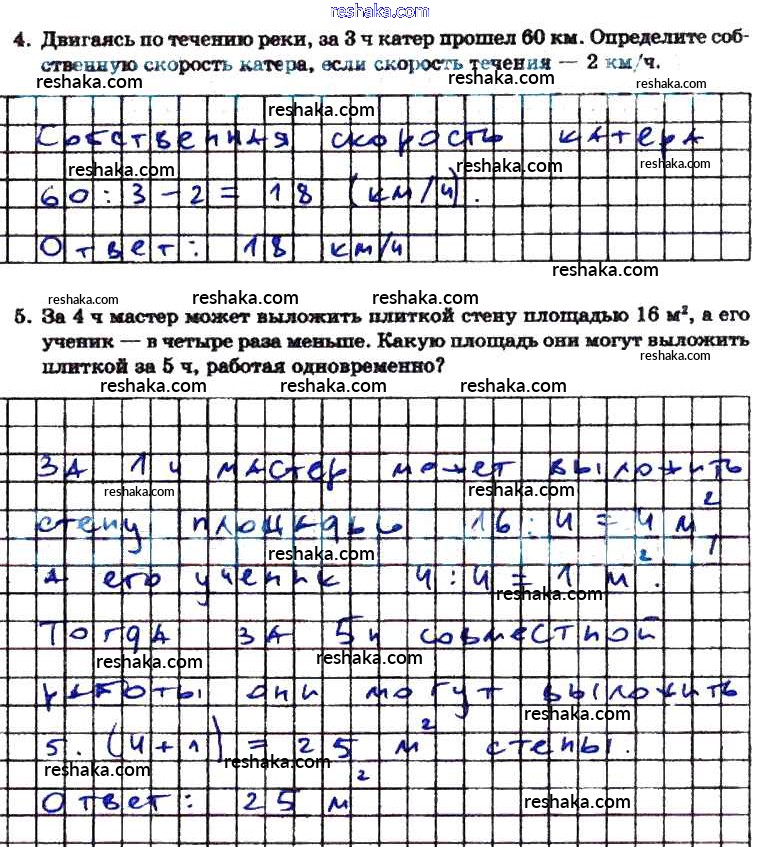 reshaka.com reshaka.com
4. Двигаясь по течению реки, за 3 ч катер прошел 60 км. Определите соб-
ственную скорость катера, если скорость течения — 2 км/ч.
reshaka.com reshaka.com
reshaka.com reshaka.com
Собственная скорость катера
reshaka.com reshaka.com reshaka.com
60 : 3 - 2 = 18 (км/ч).
Ответ: 18 км/ч
reshaka.com
reshaka.com reshaka.com reshaka.com
5. За 4 ч мастер может выложить плиткой стену площадью 16 м², а его
ученик — в четыре раза меньше. Какую площадь они могут выложить
reshaka.com
плиткой за 5 ч, работая одновременно?
reshaka.com reshaka.com
За 1 ч мастер может выложить
reshaka.com reshaka.com
стену площадью 16 : 4 = 4 м²,
reshaka.com reshaka.com
а его ученик 4 : 4 = 1 м².
reshaka.com
Тогда за 5 ч совместной
reshaka.com reshaka.com
работы они могут выложить
reshaka.com
5 · (4 + 1) = 25 м² стены.
reshaka.com reshaka.com
Ответ: 25 м²
reshaka.com